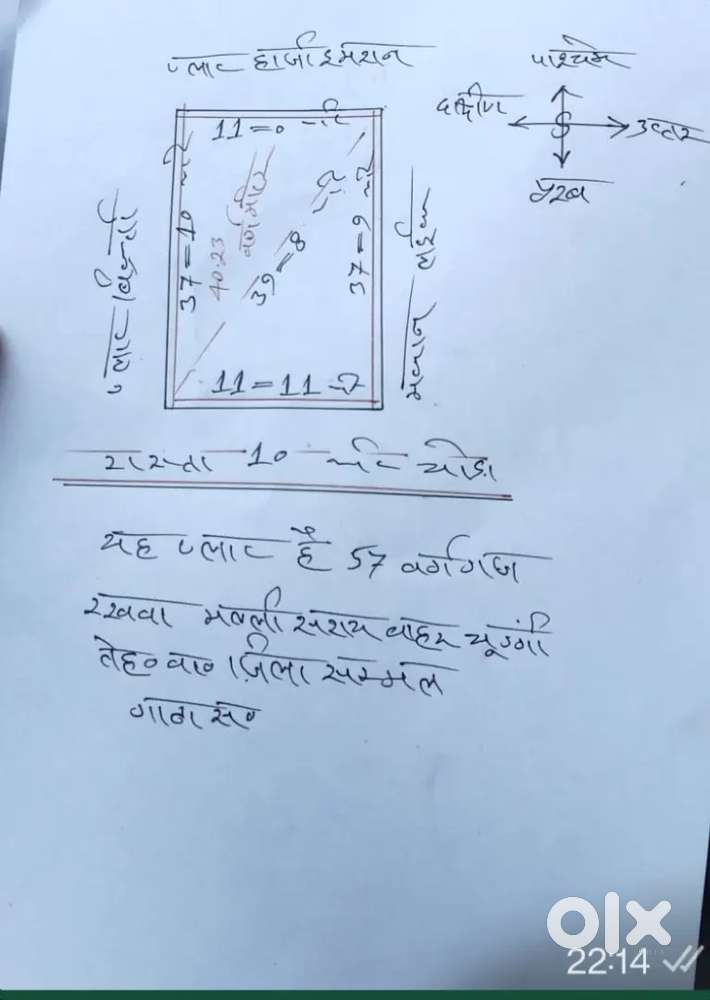 प्लाट हाजी इमरान
पश्चिम
दक्षिण
उत्तर
पूरब
11=0 फिट
37=10 फिट
40.23 वर्ग मीटर
39=8 फिट
37=9 फिट
11=11 फि
प्लाट विक्रेता
मकान
रास्ता 10 फिट चौड़ा
यह प्लाट है 57 वर्गगज
रकवा सराय बाहर चूंगी
तेह० व० जिला सम्भल
olx
22:14